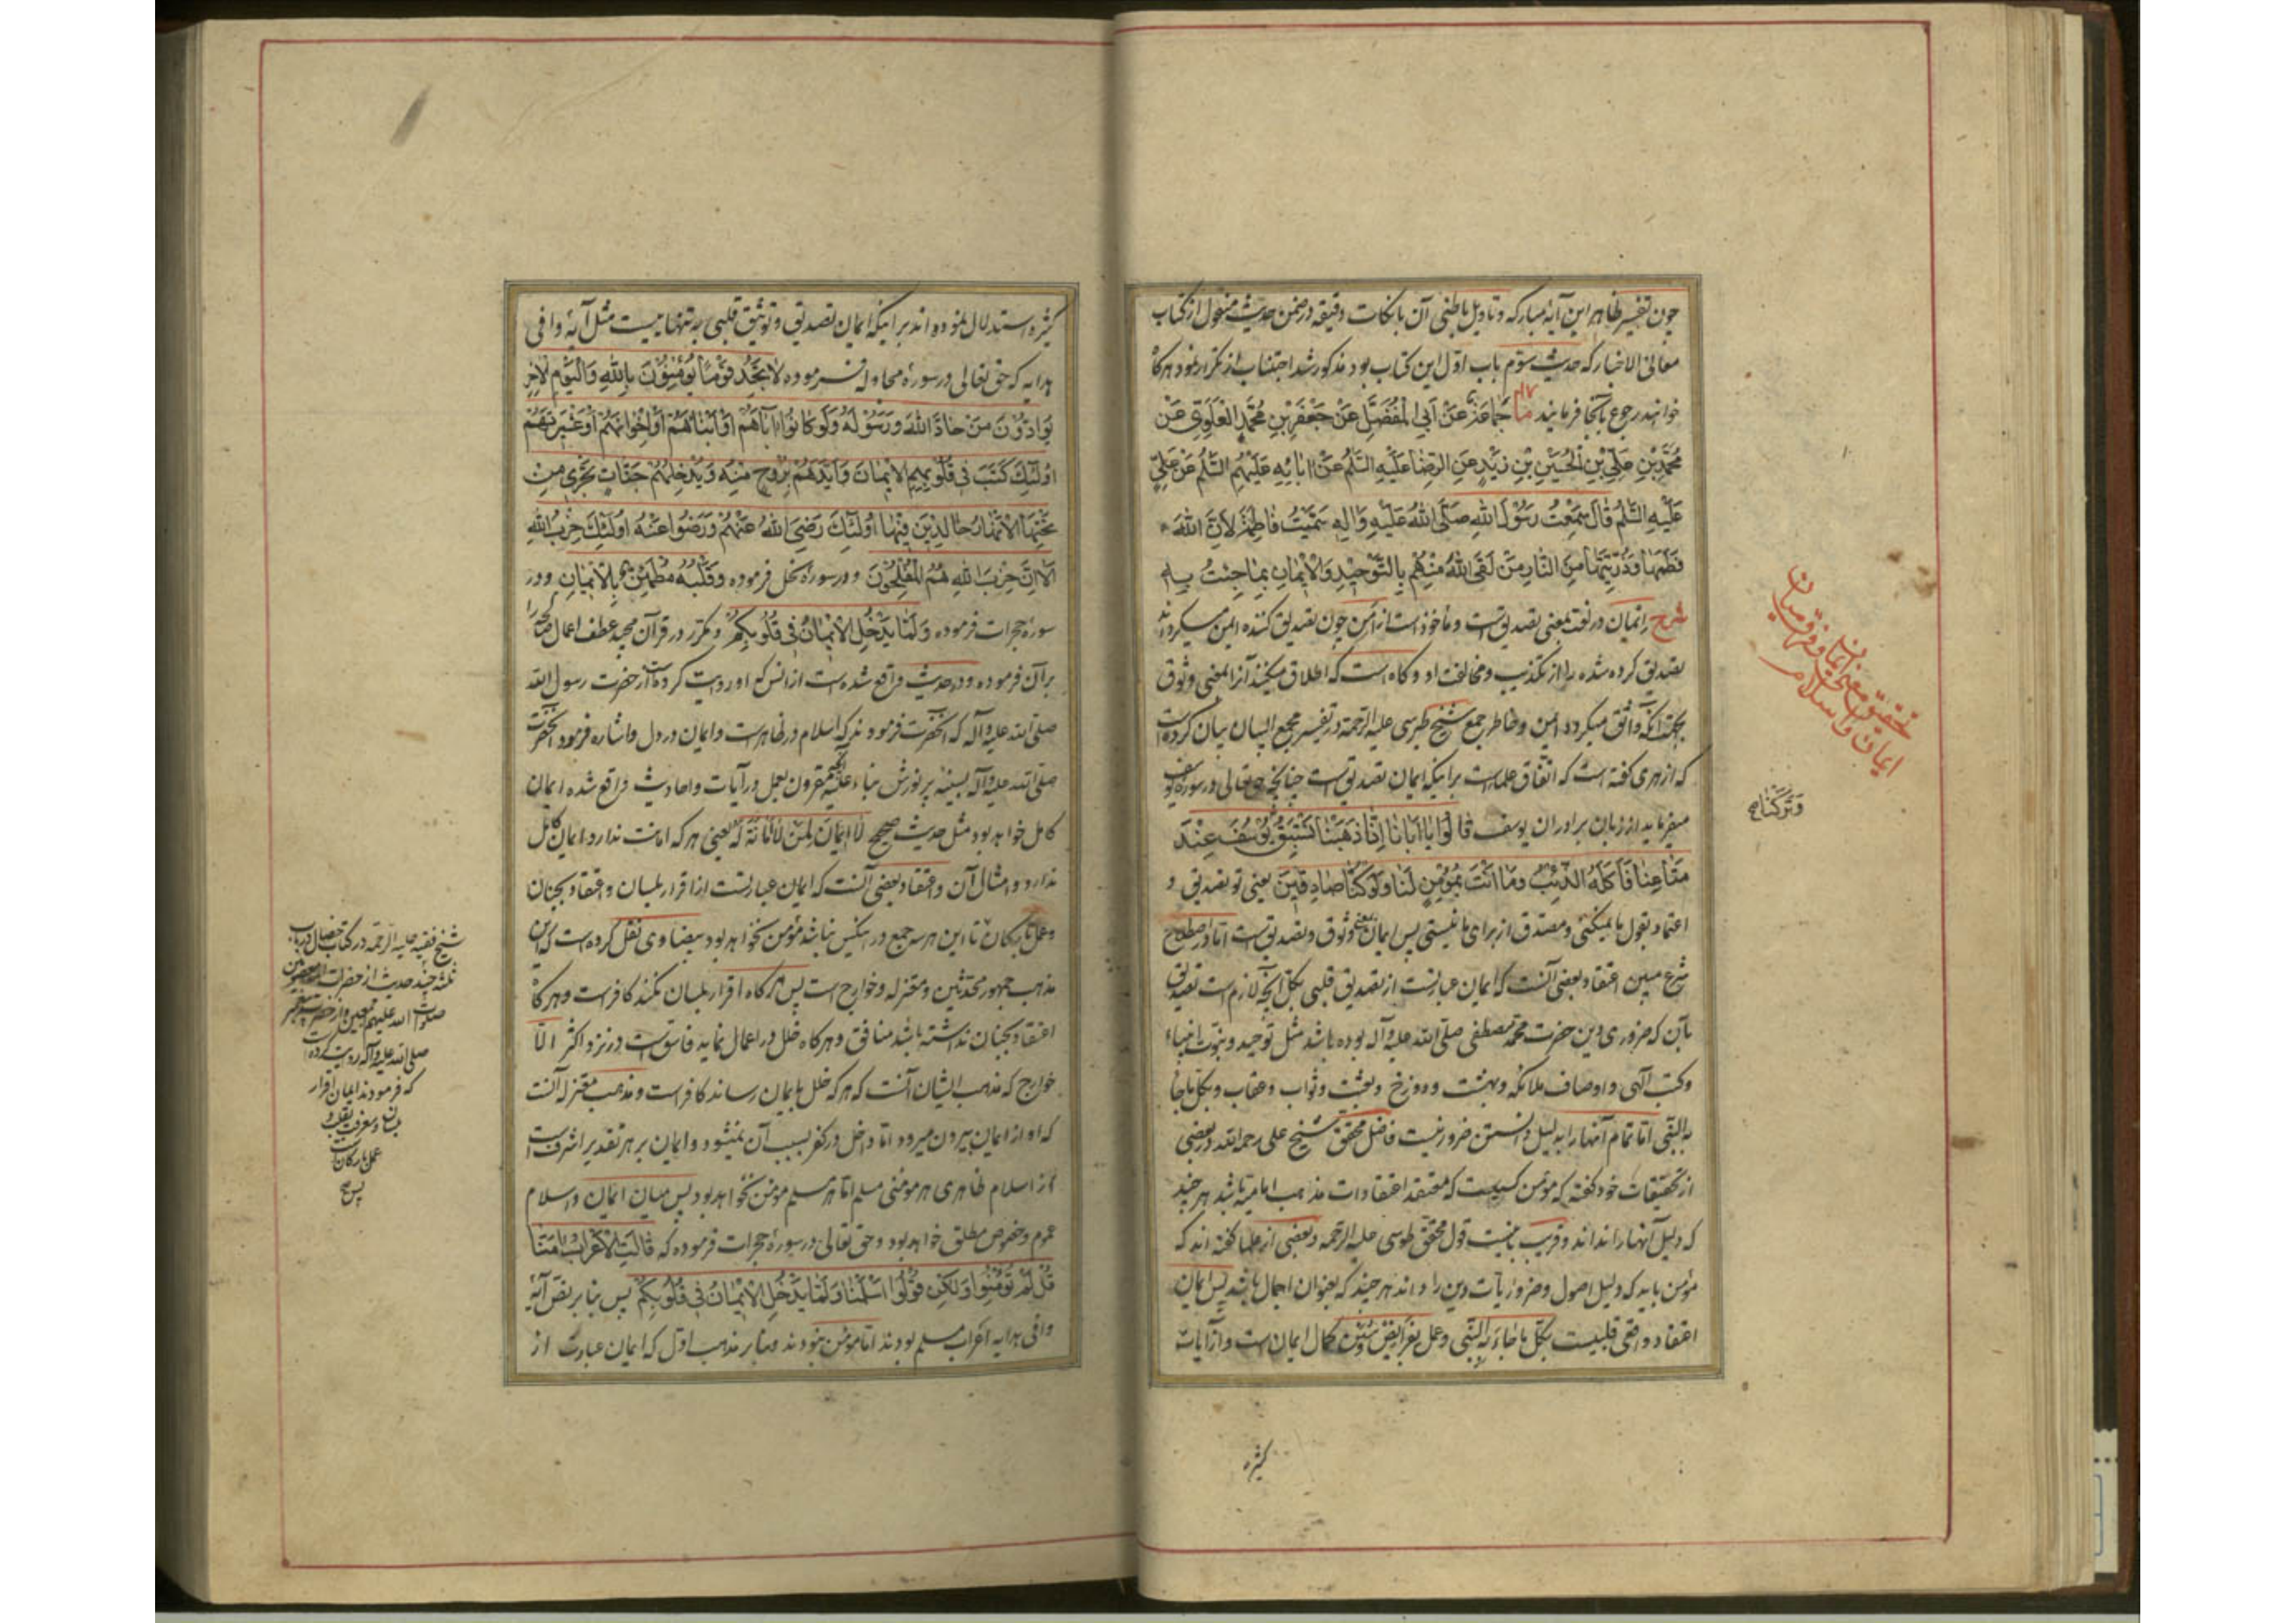 چون تفسیر ظاهر این آیهٔ مبارکه و تاویل باطنی آن با نکات دقیقه در ضمن حدیث منقول از کتاب
معانی الاخبار که حدیث سوّم باب اوّل این کتاب بود مذکور شد اجتناب از تکرار نمود هرکاه
خواهند رجوع بآنجا فرمایند جَماعَةٌ عَنْ اَبِی الْمُفَضَّلِ عَنْ جَعْفَرِ بْنِ مُحَمَّدٍ الْعَلَوِیِّ عَنْ
مُحَمَّدِ بْنِ عَلِیِّ بْنِ الْحُسَیْنِ بْنِ زَیْدٍ عَنِ الرِّضا عَلَیْهِ السَّلٰمُ عَنْ اٰبائِهِ عَلَیْهِمُ السَّلٰمُ عَنْ عَلِیٍّ
عَلَیْهِ السَّلٰمُ قالَ سَمِعْتُ رَسُوْلَ اللهِ صَلَّی اللهُ عَلَیْهِ وَاٰلِهِ سَمَّیْتُ فاطِمَةَ لِاَنَّ اللهَ
فَطَمَها وَذُرِّیَّتَها مِنَ النّارِ مَنْ لَقَی اللهَ مِنْهُمْ بِالتَّوْحِیْدِ وَالْاِیْمانِ بِما جِئْتُ بِهِ
شرح ایمان در لغت بمعنی تصدیق است و ماخوذ است از امن چون تصدیق کننده ایمن میکرداند
تصدیق کرده شده را از تکذیب و مخالفت او و کاه است که اطلاق میکنند آنرا بمعنی وثوق
بجهت آنکه واثق میکردد امن و خاطر جمع شیخ طبرسی علیه الرحمة در تفسیر مجمع البیان بیان کرده است
که ازهری کفته است که اتفاق علماست بر اینکه ایمان تصدیق است چنانچه حق تعالی در سورهٔ یوسف
میفرماید از زبان برادران یوسف قالُوا یا اَبانا اِنّا ذَهَبْنا نَسْتَبِقُ یُوسُفَ عِنْدَ
مَتاعِنا فَاَکَلَهُ الذِّئْبُ وَما اَنْتَ بِمُؤْمِنٍ لَنا وَلَوْ کُنّا صادِقِیْنَ یعنی تو تصدیق و
اعتماد بقول ما نمیکنی و مصدق از برای ما نیستی پس ایمان بمعنی وثوق و تصدیق است امّا در اصطلاح
شرع مبین اعتقاد بعضی آنست که ایمان عبارتست از تصدیق قلبی بکل آنچه لازم است تصدیق
بآن که ضروری دین حضرت محمّد مصطفی صلّی الله علیه وآله بوده باشد مثل توحید و نبوّت انبیاء
وکتب آلهی و اوصاف ملائکه و بهشت و دوزخ و بعثت و ثواب و عقاب و بکل ما جا
به النبی امّا تمام آنها را بدلیل دانستن ضرور نیست فاضل محقق شیخ علی رحمه الله در بعضی
از تحقیقات خود کفته که مؤمن کسیست که معتقد اعتقادات مذهب امامیه باشد هر چند
که دلیل آنها را نداند و قریب باینست قول محقق طوسی علیه الرحمه و بعضی از علما کفته اند که
مؤمن باید که دلیل اصول و ضروریات دین را داند هر چند که بعنوان اجمال باشد پس ایمان
اعتقاد واقعی قلبیست بکل ما جاءَ به النبی و عمل بفرایض و سنن کمال ایمان است و از آیات
کثیره
تحقیق معنی ایمان و فرق میان
ایمان و اسلام
وَتَرَکْنا
کثیره استدلال نموده اند بر اینکه ایمان تصدیق و توثیق قلبی به تنها نیست مثل آیهٔ وافی
هدایه که حق تعالی در سورهٔ مجادله فرموده لا تَجِدُ قَوْماً یُؤْمِنُوْنَ بِاللهِ وَالْیَوْمِ الْاٰخِرِ
یُوادُّوْنَ مَنْ حادَّ اللهَ وَرَسُوْلَهُ وَلَوْ کانُوا اٰباءَهُمْ اَوْ اَبْناءَهُمْ اَوْ اِخْوانَهُمْ اَوْ عَشِیْرَتَهُمْ
اُولٰئِکَ کَتَبَ فِی قُلُوْبِهِمُ الْاِیْمانَ وَاَیَّدَهُمْ بِرُوْحٍ مِنْهُ وَیُدْخِلُهُمْ جَنّاتٍ تَجْرِی مِنْ
تَحْتِهَا الْاَنْهارُ خالِدِیْنَ فِیْها اُولٰئِکَ رَضِیَ اللهُ عَنْهُمْ وَرَضُوا عَنْهُ اُولٰئِکَ حِزْبُ اللهِ
اَلا اِنَّ حِزْبَ اللهِ هُمُ الْمُفْلِحُوْنَ و در سورهٔ نحل فرموده وَقَلْبُهُ مُطْمَئِنٌّ بِالْاِیْمانِ و در
سورهٔ حجرات فرموده وَلَمّا یَدْخُلِ الْاِیْمانُ فِی قُلُوْبِکُمْ و مکرّر در قرآن مجید عطف اعمال صالحه را
بر آن فرموده و در حدیث واقع شده است از انس که او روایت کرده است از حضرت رسول الله
صلّی الله علیه وآله که آنحضرت فرمودند که اسلام در ظاهر است و ایمان در دل و اشاره فرمود آنحضرت
صلّی الله علیه وآله بسینهٔ پرنورش بناء علیه مقرون بعمل در آیات و احادیث واقع شده ایمان
کامل خواهد بود مثل حدیث صحیح لا اِیْمانَ لِمَنْ لا اَمانَةَ لَهُ یعنی هر که امانت ندارد ایمان کامل
ندارد و امثال آن و اعتقاد بعضی آنست که ایمان عبارتست از اقرار بلسان و اعتقاد بجنان
وعمل بارکان تا این هر سه جمع در آنکس نباشد مؤمن نخواهد بود بیضاوی نقل کرده است که این
مذهب جمهور محدثین و معتزله و خوارج است پس هرکاه اقرار بلسان نکند کافر است و هرکاه
اعتقاد بجنان نداشته باشد منافق و هرکاه خلل در اعمال نماید فاسق است در نزد اکثر الّا
خوارج که مذهب ایشان آنست که هر که خلل بایمان رساند کافر است و مذهب معتزله آنست
که او از ایمان بیرون میرود امّا داخل در کفر بسبب آن نمیشود و ایمان بر هر تقدیر اشرف است
از اسلام ظاهری هر مومنی مسلم امّا هر مسلم مؤمن نخواهد بود پس میان ایمان و اسلام
عموم و خصوص مطلق خواهد بود و حق تعالی در سورهٔ حجرات فرموده که قالَتِ الْاَعْرابُ اٰمَنّا
قُلْ لَمْ تُؤْمِنُوا وَلٰکِنْ قُوْلُوا اَسْلَمْنا وَلَمّا یَدْخُلِ الْاِیْمانُ فِی قُلُوْبِکُمْ پس بنابر نصّ آیهٔ
وافی هدایه اعراب مسلم بودند امّا مؤمن نبودند و بنابر مذهب اوّل که ایمان عبارت از
شیخ فقیه علیه الرحمه در کتاب خصال در باب
ثلثه چند حدیث از حضرات ائمه معصومین
صلوات الله علیهم اجمعین و از حضرت پیغمبر
صلّی الله علیه وآله روایت کرده
که فرمودند ایمان اقرار
بلسان و معرفت بقلب و
عمل بارکان است
پس